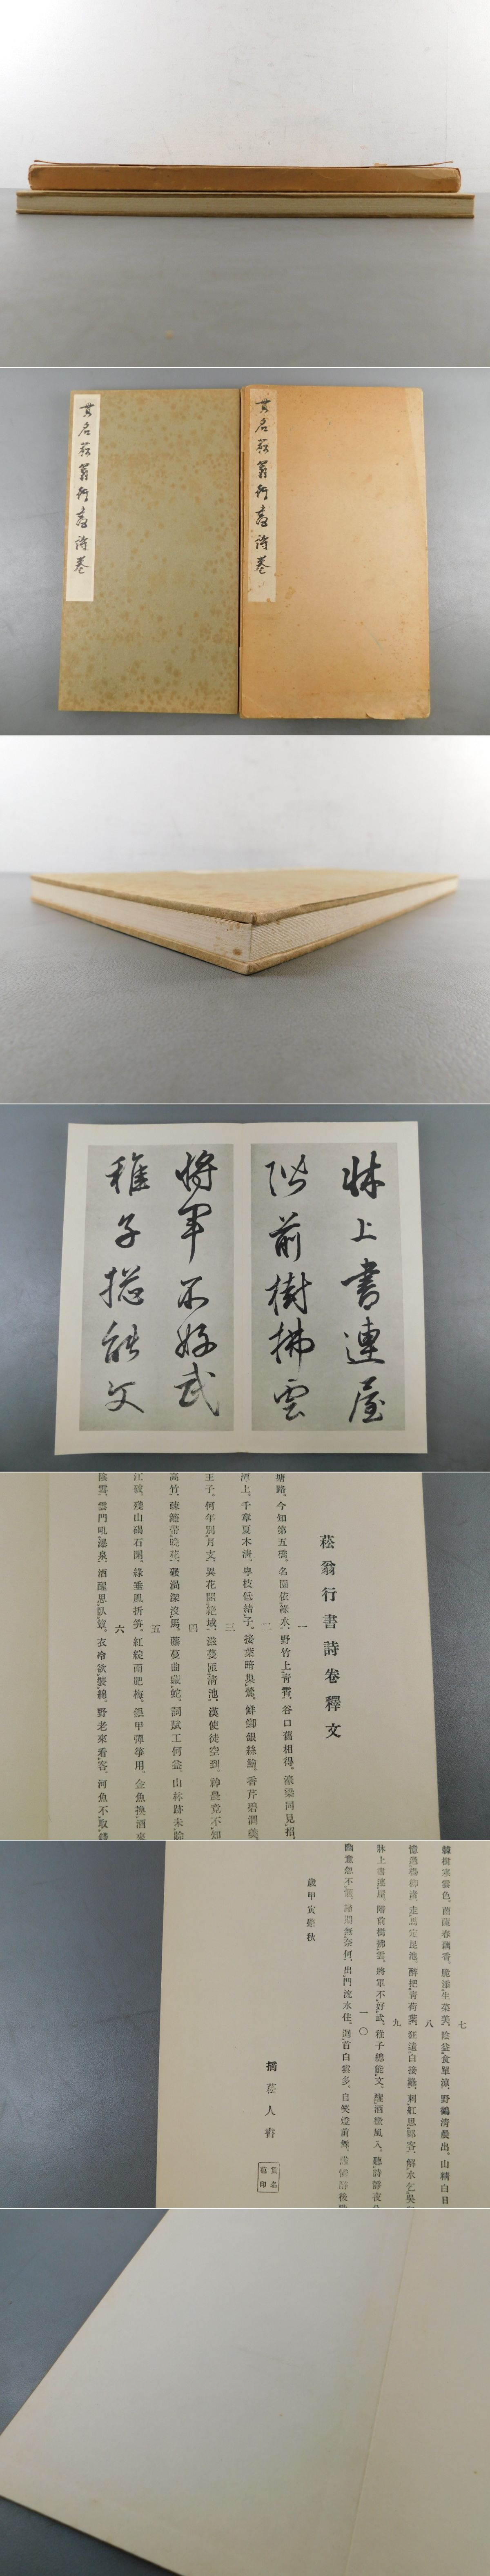 貫名菘翁行書詩巻
貫名菘翁行書詩巻
牀上書連屋
階前樹拂雲
將軍不好武
稚子總能文
菘翁行書詩卷釋文
一
塘路、今知第五橋、名園依綠水、野竹上青霄、谷口舊相得、濠梁同見招、
二
潭上、千章夏木清、卑枝低結子、接葉暗巢鶯、鮮鯽銀絲鱠、香芹碧澗羹、
三
王子、何年別月支、異花開絕域、滋蔓匝清池、漢使徒空到、神農竟不知
四
高竹、疎籬帶晚花、碾渦深沒馬、藤蔓曲藏蛇、詞賦工何益、山林跡未賒
五
江破、殘山碣石開、綠垂風折笋、紅綻雨肥梅、銀甲彈箏用、金魚換酒來
六
陰雪、雲門吼瀑泉、酒醒思臥簟、衣冷欲裝綿、野老來看客、河魚不取錢
七
棘樹寒雲色、茵蔯春藕香、脆添生菜美、陰益食單涼、野鶴清晨出、山精白日
八
憶過楊柳渚、走馬定昆池、醉把青荷葉、狂遺白接䍦、刺船思郢客、解水乞吳
九
牀上書連屋、階前樹拂雲、將軍不好武、稚子總能文、醒酒微風入、聽詩靜夜
一〇
幽意忽不愜、歸期無奈何、出門流水住、囘首白雲多、自笑燈前舞、誰憐醉後
歲甲寅維秋
菘人書